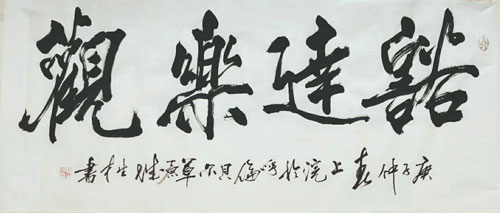 豁達樂觀
庚子仲春上浣於呼倫貝尔草原書